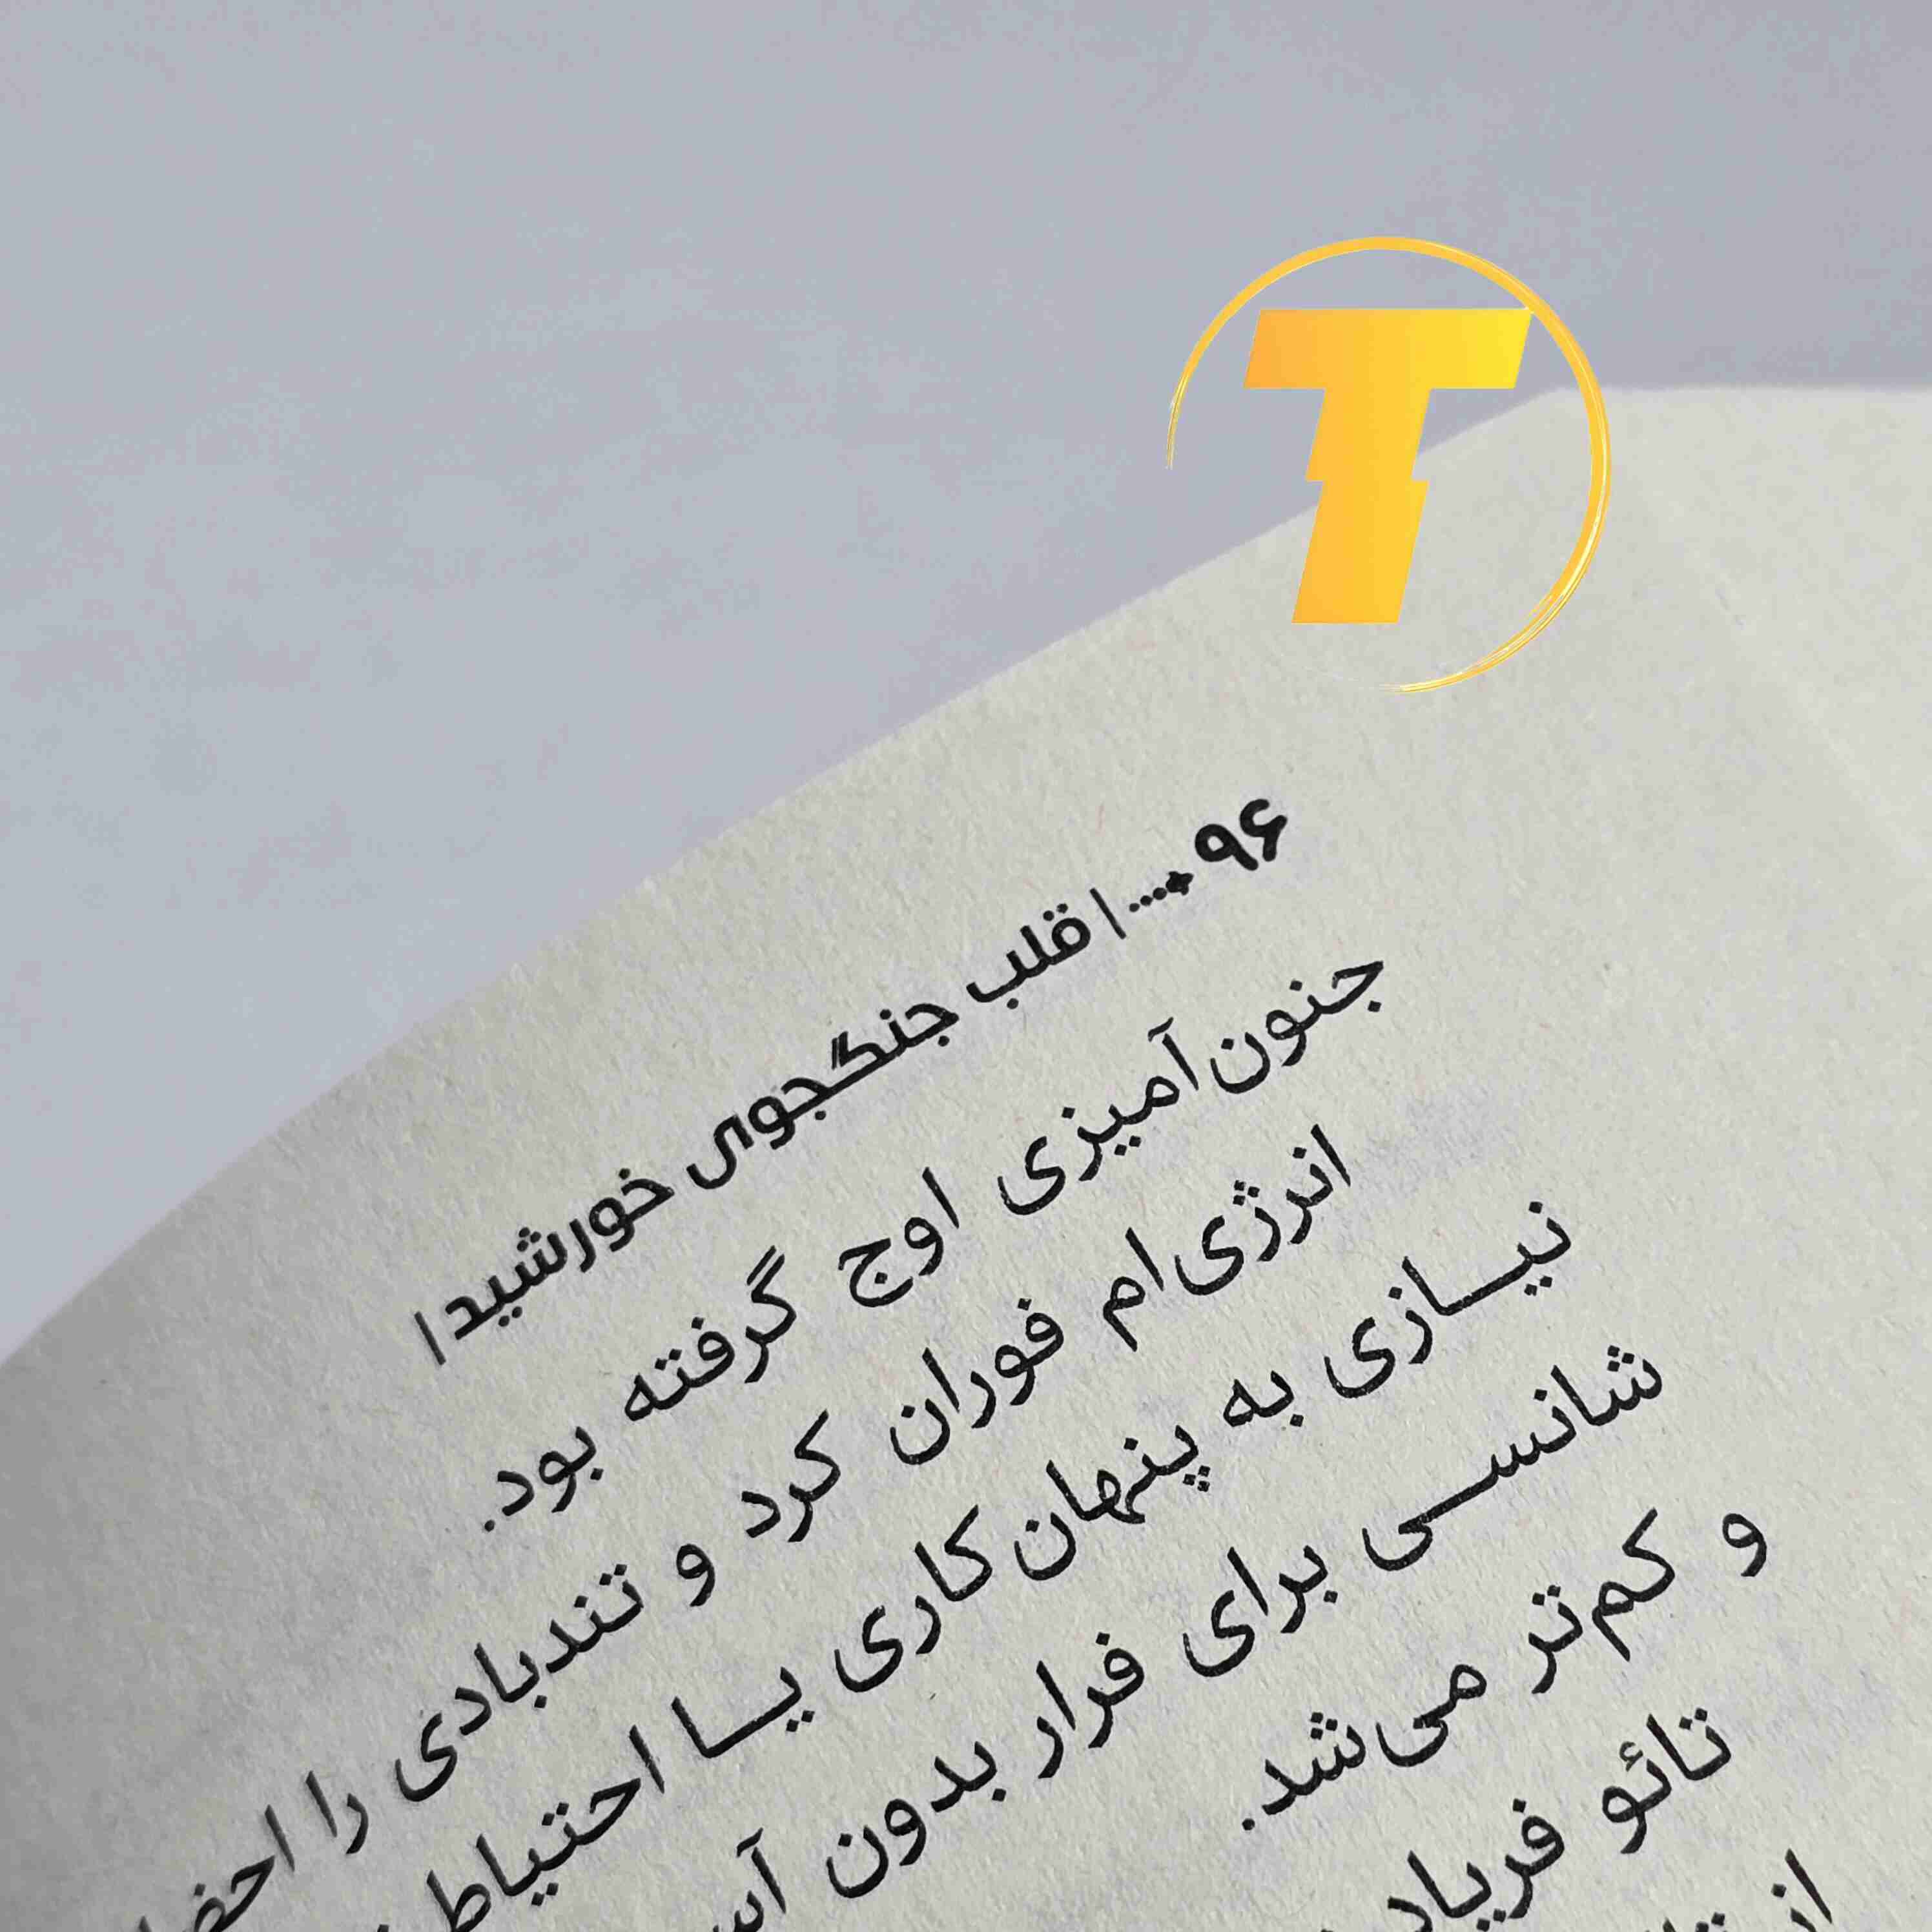 T
۹۶ ....| قلب جنگجوی خورشید |
جنون‌آمیزی اوج گرفته بود.
انرژی‌ام فوران کرد و تندبادی را
نیازی به پنهان‌کاری یا احتیاط
شانسی برای فرار بدون
و کم‌تر می‌شد.
تائو فریاد